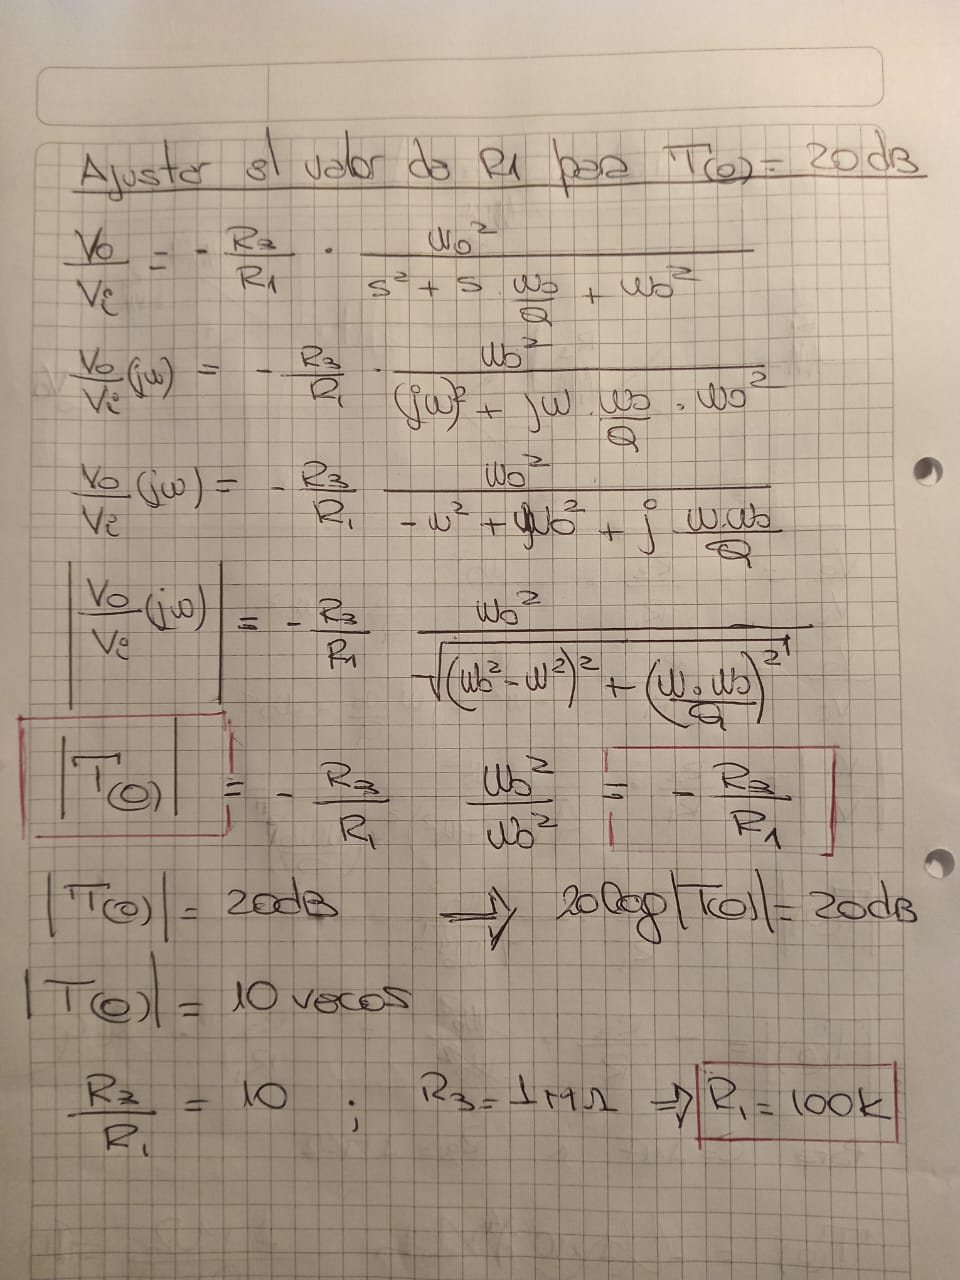 Ajustar el valor de R1 para T(0) = 20 dB
Vo/Vi = - R3/R1 · ωo²/(s² + s · ωo/Q + ωo²)
Vo/Vi (jω) = - R3/R1 · ωo²/((jω)² + jω · ωo/Q · ωo²)
Vo/Vi (jω) = - R3/R1 ωo²/(-ω² + ωo² + j ω·ωo/Q)
|Vo/Vi (jω)| = - R3/R1 ωo²/√((ωo² - ω²)² + (ω·ωo/Q)²)
|T(0)| = - R3/R1 ωo²/ωo² = - R3/R1
|T(0)| = 20dB ⇒ 20log|T(0)| = 20dB
|T(0)| = 10 veces
R3/R1 = 10 ; R3 = 1MΩ ⇒ R1 = 100K